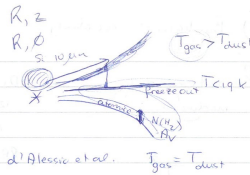 R, z
R, Ø
Si 10 μm
Tgas > Tdust
freezeout
N(H2)
Av
d'Alessio et al.
Tgas = Tdust